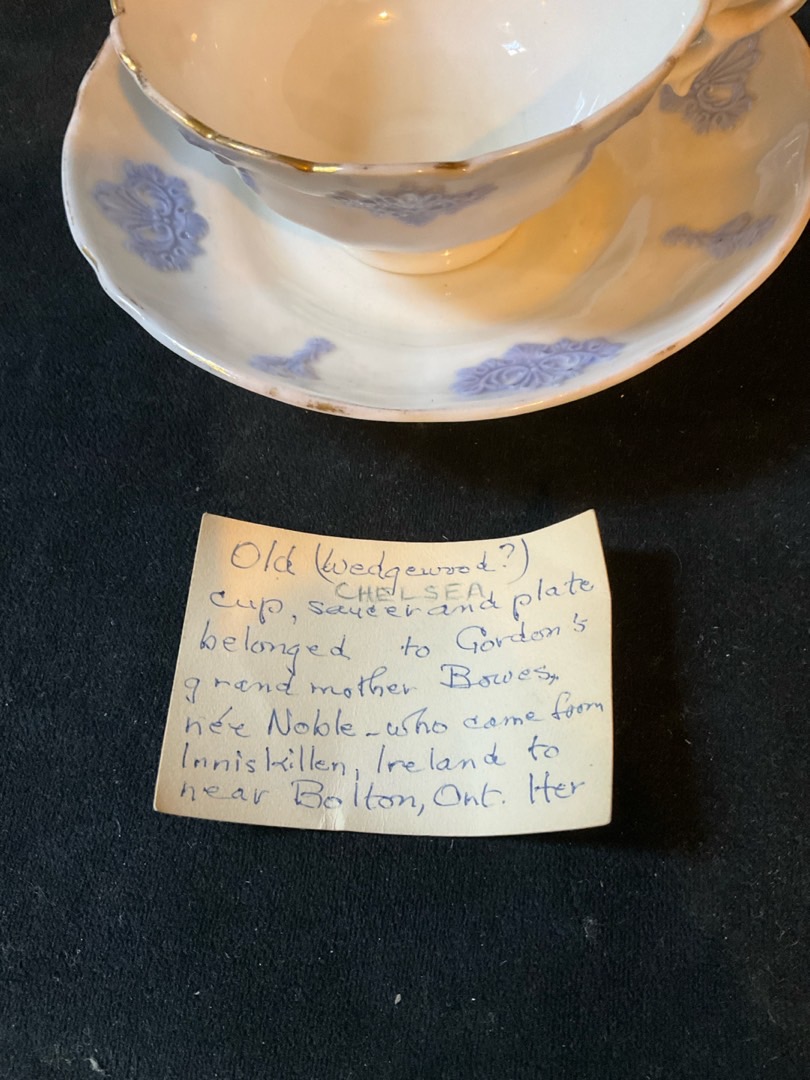 Old (Wedgewood?)
CHELSEA
cup, saucer and plate
belonged to Gordon's
grandmother Bowes,
née Noble - who came from
Inniskillen, Ireland to
near Bolton, Ont. Her